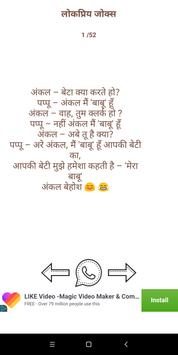 लोकप्रिय जोक्स
1 /52
अंकल – बेटा क्या करते हो?
पप्पू – अंकल मैं 'बाबू' हूँ
अंकल – वाह, तुम क्लर्क हो ?
पप्पू – नहीं अंकल मैं 'बाबू' हूँ
अंकल – अबे तू है क्या?
पप्पू – अरे अंकल, मैं बाबू हूँ आपकी बेटी
का,
आपकी बेटी मुझे हमेशा कहती है – 'मेरा
बाबू'
अंकल बेहोश 😊 😂
LIKE Video -Magic Video Maker & Com...
FREE Over 79 million people use this
Install